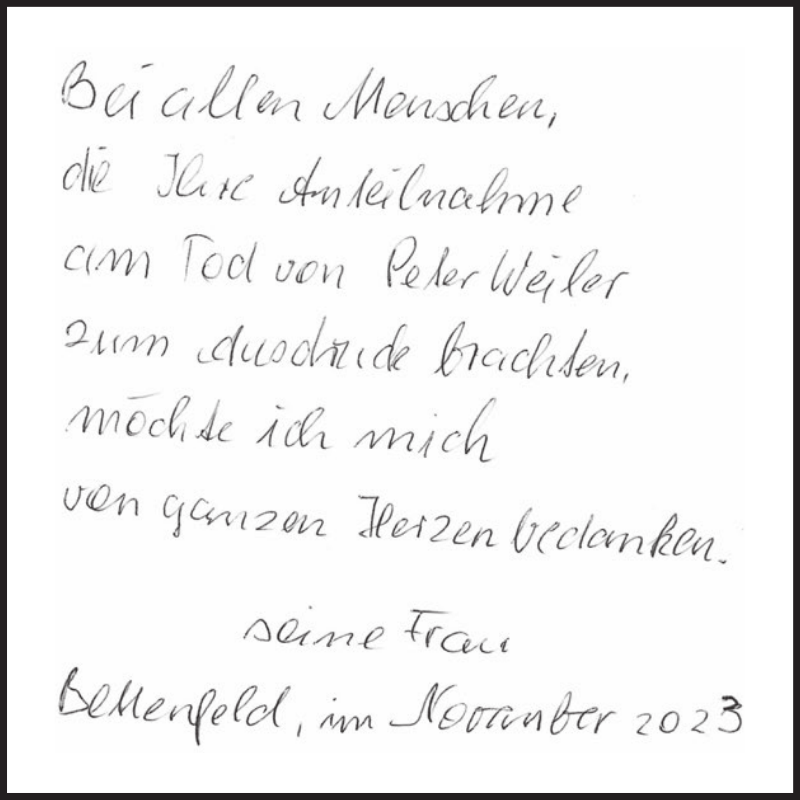 Bei allen Menschen,
die Ihre Anteilnahme
am Tod von Peter Weiler
zum Ausdruck brachten,
möchte ich mich
von ganzen Herzen bedanken.
seine Frau
Bettenfeld, im November 2023